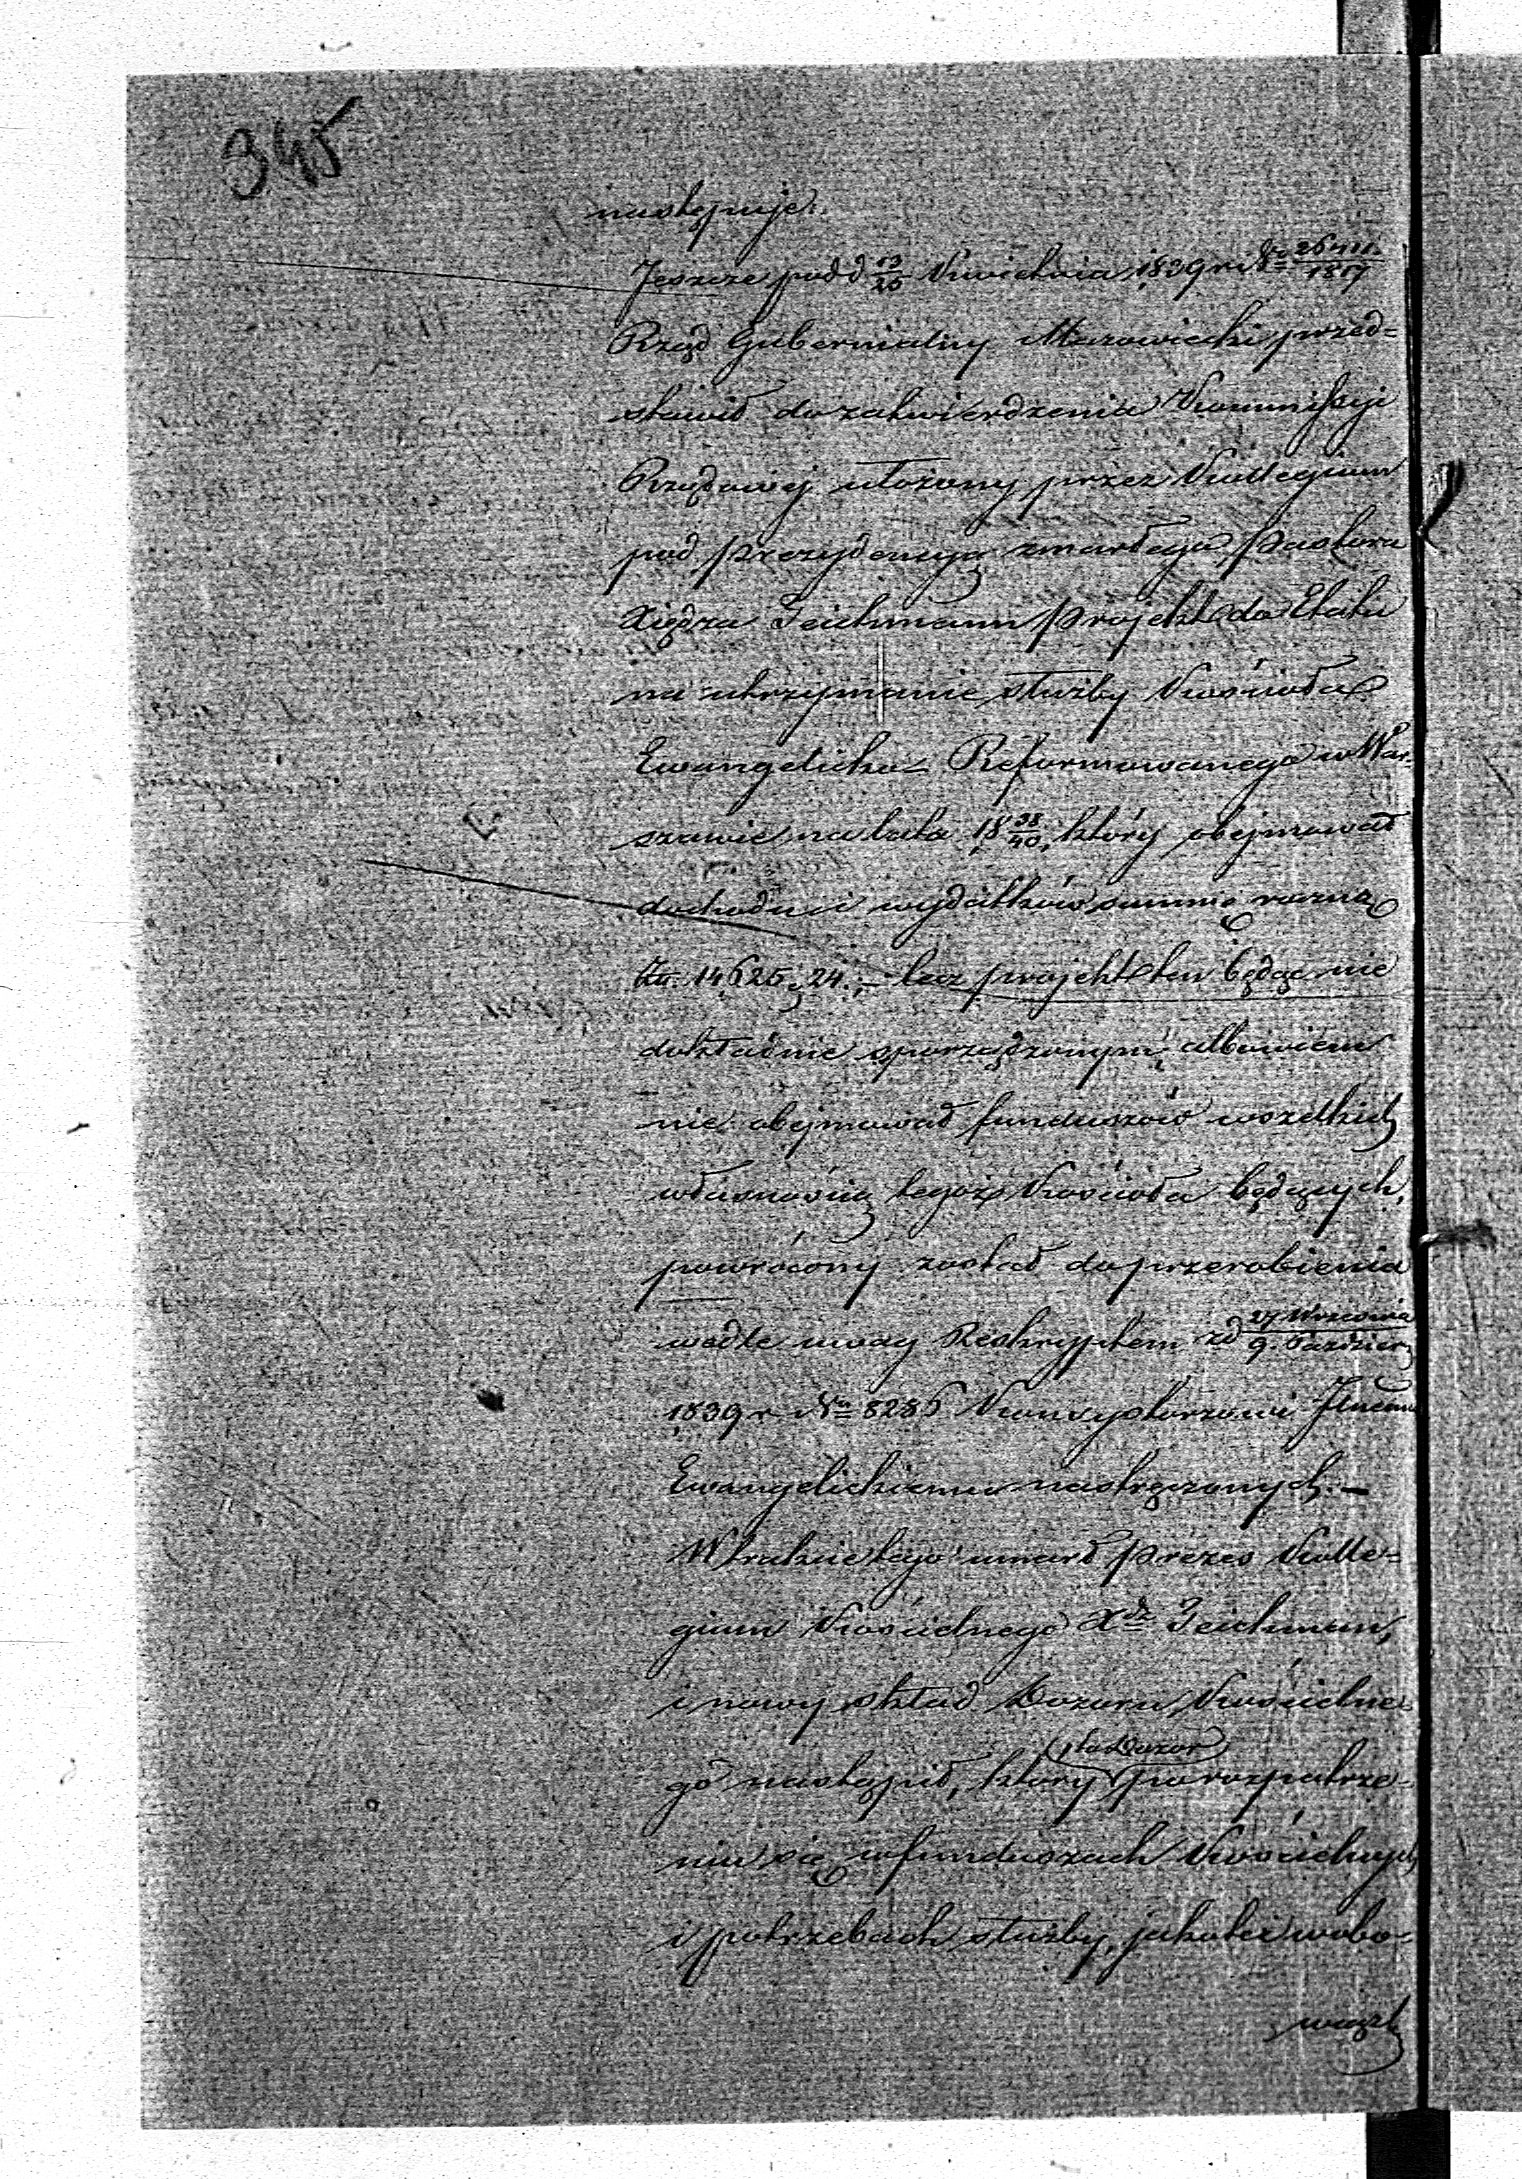 345
następuje.
Jeszcze pod d 13/25 Kwietnia 1839 r. No 26411/1817
Rząd Gubernialny Mazowiecki przed=
stawił do zatwierdzenia Kommissyi
Rządowej ułożony przez Kollegium
pod prezydencyą zmarłego Pastora
Xiędza Teichmann projekt do Etatu
na utrzymanie służby Kościoła
Ewangelicko-Reformowanego w War-
szawie na lata 18 38/40, który obejmował
dochodu i wydatków summę roczną
Zł. 14625, 24.- lecz projekt ten będąc nie
dokładnie sporządzonym, albowiem
nie obejmował funduszów wszelkich
własnością tegoż Kościoła będących,
powrócony został do przerobienia
wedle uwag Reskryptem z d 27 Września/9. Paździer
1839 r No 8286 Konsystorzowi Jlnemu
Ewangelickiemu nastręczonych.-
W trakcie tego umarł Prezes Kolle=
gium Kościelnego Xdz Teichman,
i nowy skład Dozoru Kościelne
go nastąpił, który po rozpatrze-
to Dozor
niu się w funduszach Kościelnych
i potrzebach służby, jakoteż wobo-
wiązk